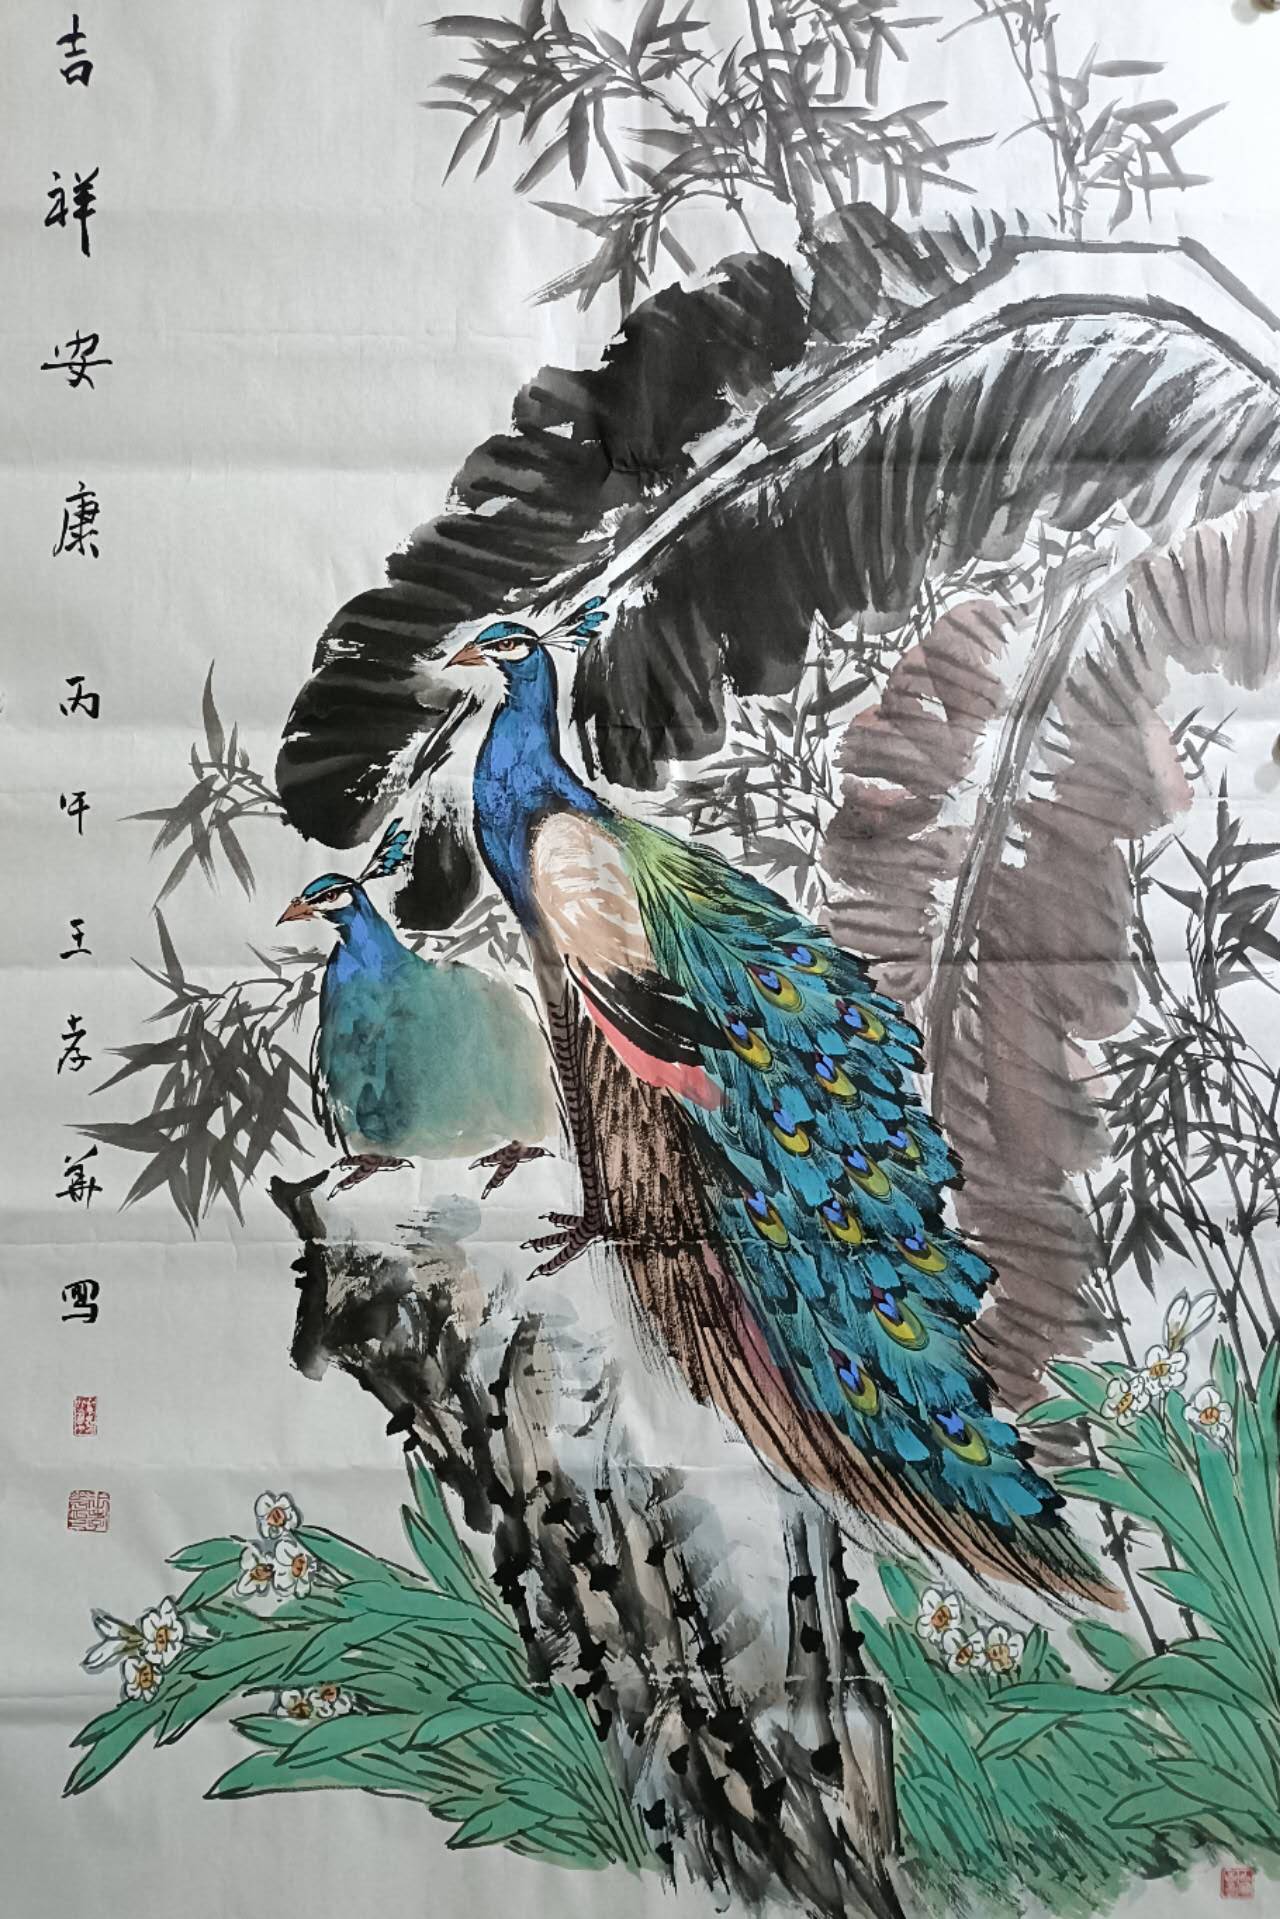 吉祥安康丙午王孝華寫